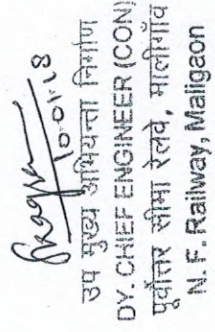 10-01-18
उप मुख्य अभियन्ता निर्माण
DY. CHIEF ENGINEER (CON)
पूर्वोत्तर सीमा रेलवे, मालीगाँव
N. F. Railway, Maligaon